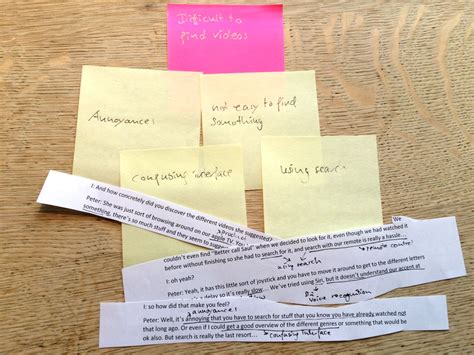 Difficult to
find videos
Annoyance!
not easy to find
something
Confusing interface
Using search
I: And how concretely did you discover the different videos she suggested?
Peter: She was just sort of browsing around on our apple TV. You
something, there's so much stuff and they seem to sugges
We
couldn't even find "Better call Saul" when we decided to look for it, even though we had watched it
before without finishing so she had to search for it, and search with our remote is really a hassle...
using search
remote control
I: oh yeah?
Peter: Yeah, it has this little sort of joystick and you have to move it around to get to the different letters
so it's really slow... We've tried using Siri, but it doesn't understand our accent at
voice recognition
I: so how did that make you feel?
annoyance!
Peter: Well, it's annoying that you have to search for stuff that you know you have already watched not
that long ago. Or even if I could get a good overview of the different genres or something that would be
ok also. But search is really the last resort...
confusing interface